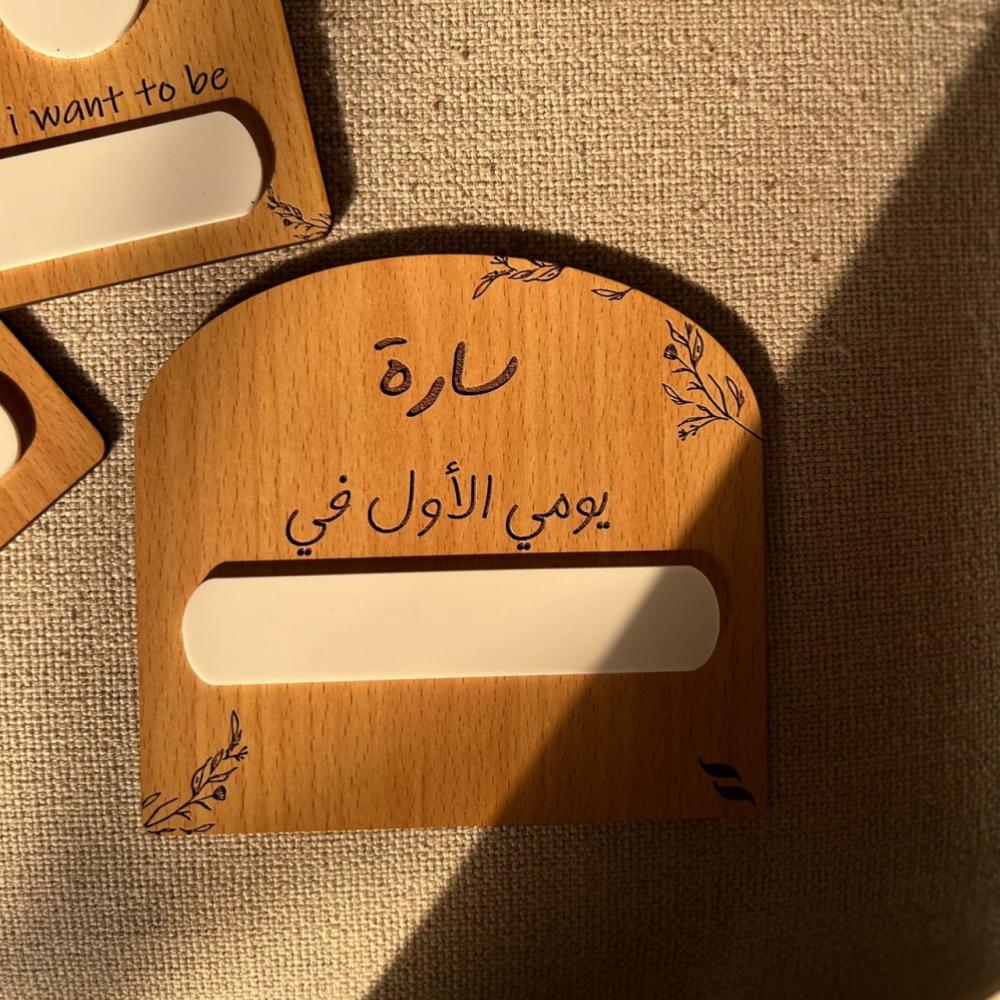 i want to be
سارة
يومي الأول في